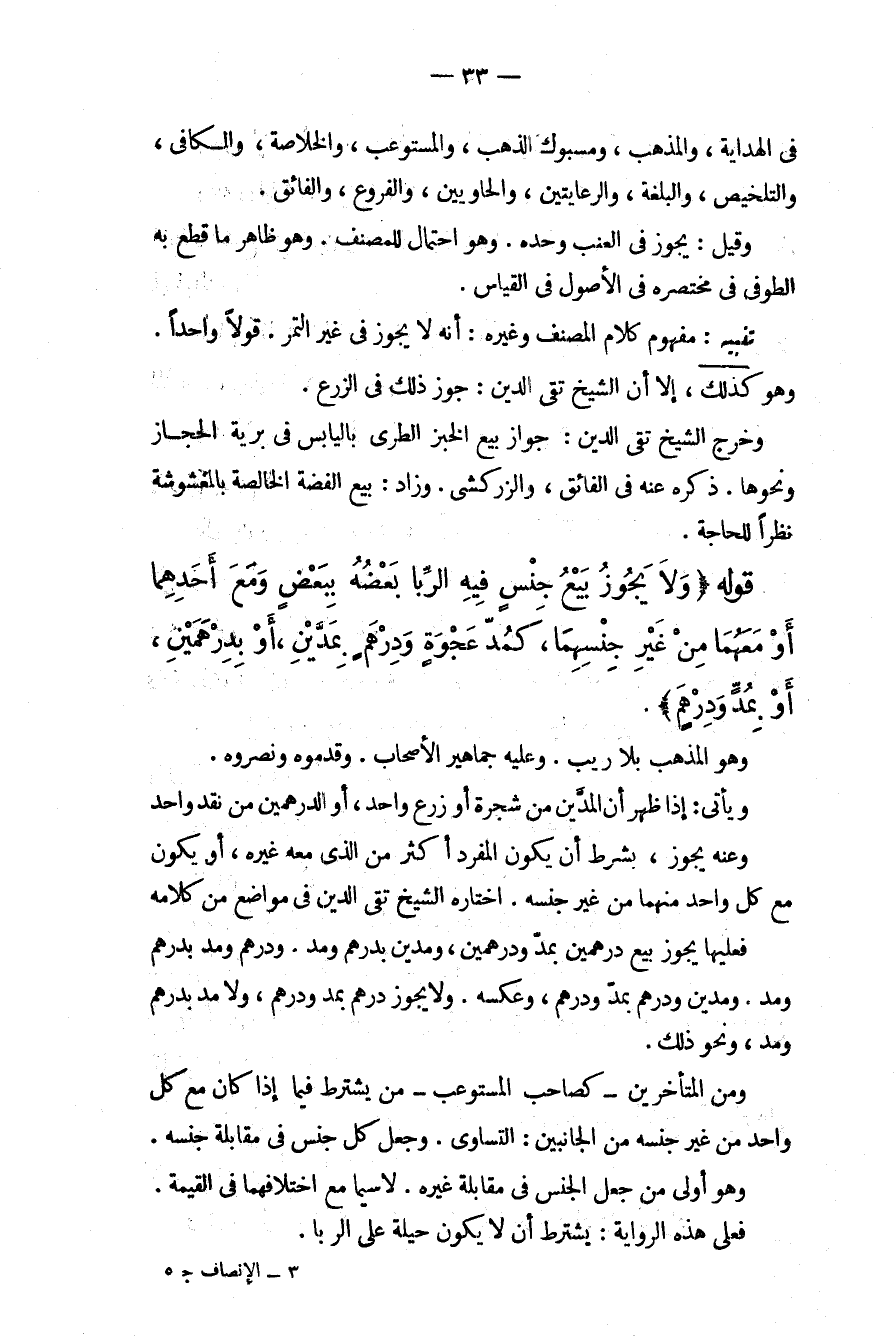 — ٣٣ —
فى الهداية ، والمذهب ، ومسبوك الذهب ، والمستوعب ، والخلاصة ، والكافى ،
والتلخيص ، والبلغة ، والرعايتين ، والحاويين ، والفروع ، والفائق .
وقيل : يجوز فى العنب وحده . وهو احتمال للمصنف . وهو ظاهر ما قطع به
الطوفى فى مختصره فى الأصول فى القياس .
تنبيه : مفهوم كلام المصنف وغيره : أنه لا يجوز فى غير التمر . قولاً واحداً .
وهو كذلك ، إلا أن الشيخ تقى الدين : جوز ذلك فى الزرع .
وخرج الشيخ تقى الدين : جواز بيع الخبز الطرى باليابس فى برية الحجاز
ونحوها . ذكره عنه فى الفائق ، والزركشى . وزاد : بيع الفضة الخالصة بالمغشوشة
نظراً للحاجة .
قوله ﴿ وَلاَ يَجُوزُ بَيْعُ جِنْسٍ فِيهِ الرِّبا بَعْضُهُ بِبَعْضٍ وَمَعَ أَحَدِهِما
أَوْ مَعَهُمَا مِنْ غَيْرِ جِنْسِهِمَا ، كَمُدِّ عَجْوَةٍ وَدِرْهَمٍ بِمَدَّيْنِ ، أَوْ بِدِرْهَمَيْنِ ،
أَوْ بِمُدٍّ وَدِرْهَمٍ ﴾ .
وهو المذهب بلا ريب . وعليه جماهير الأصحاب . وقدموه ونصروه .
ويأتى : إذا ظهر أن المدَّين من شجرة أو زرع واحد ، أو الدرهمين من نقد واحد
وعنه يجوز ، بشرط أن يكون المفرد أكثر من الذى معه غيره ، أو يكون
مع كل واحد منهما من غير جنسه . اختاره الشيخ تقى الدين فى مواضع من كلامه
فعليها يجوز بيع درهمين بمدّ ودرهمين ، ومدين بدرهم ومد . ودرهم ومد بدرهم
ومد . ومدين ودرهم بمدّ ودرهم ، وعكسه . ولايجوز درهم بمد ودرهم ، ولا مد بدرهم
ومد ، ونحو ذلك .
ومن المتأخرين ـ كصاحب المستوعب ـ من يشترط فيما إذا كان مع كل
واحد من غير جنسه من الجانبين : التساوى . وجعل كل جنس فى مقابلة جنسه .
وهو أولى من جعل الجنس فى مقابلة غيره . لاسيما مع اختلافهما فى القيمة .
فعلى هذه الرواية : يشترط أن لا يكون حيلة على الربا .
٣ ـ الإنصاف جـ ٥